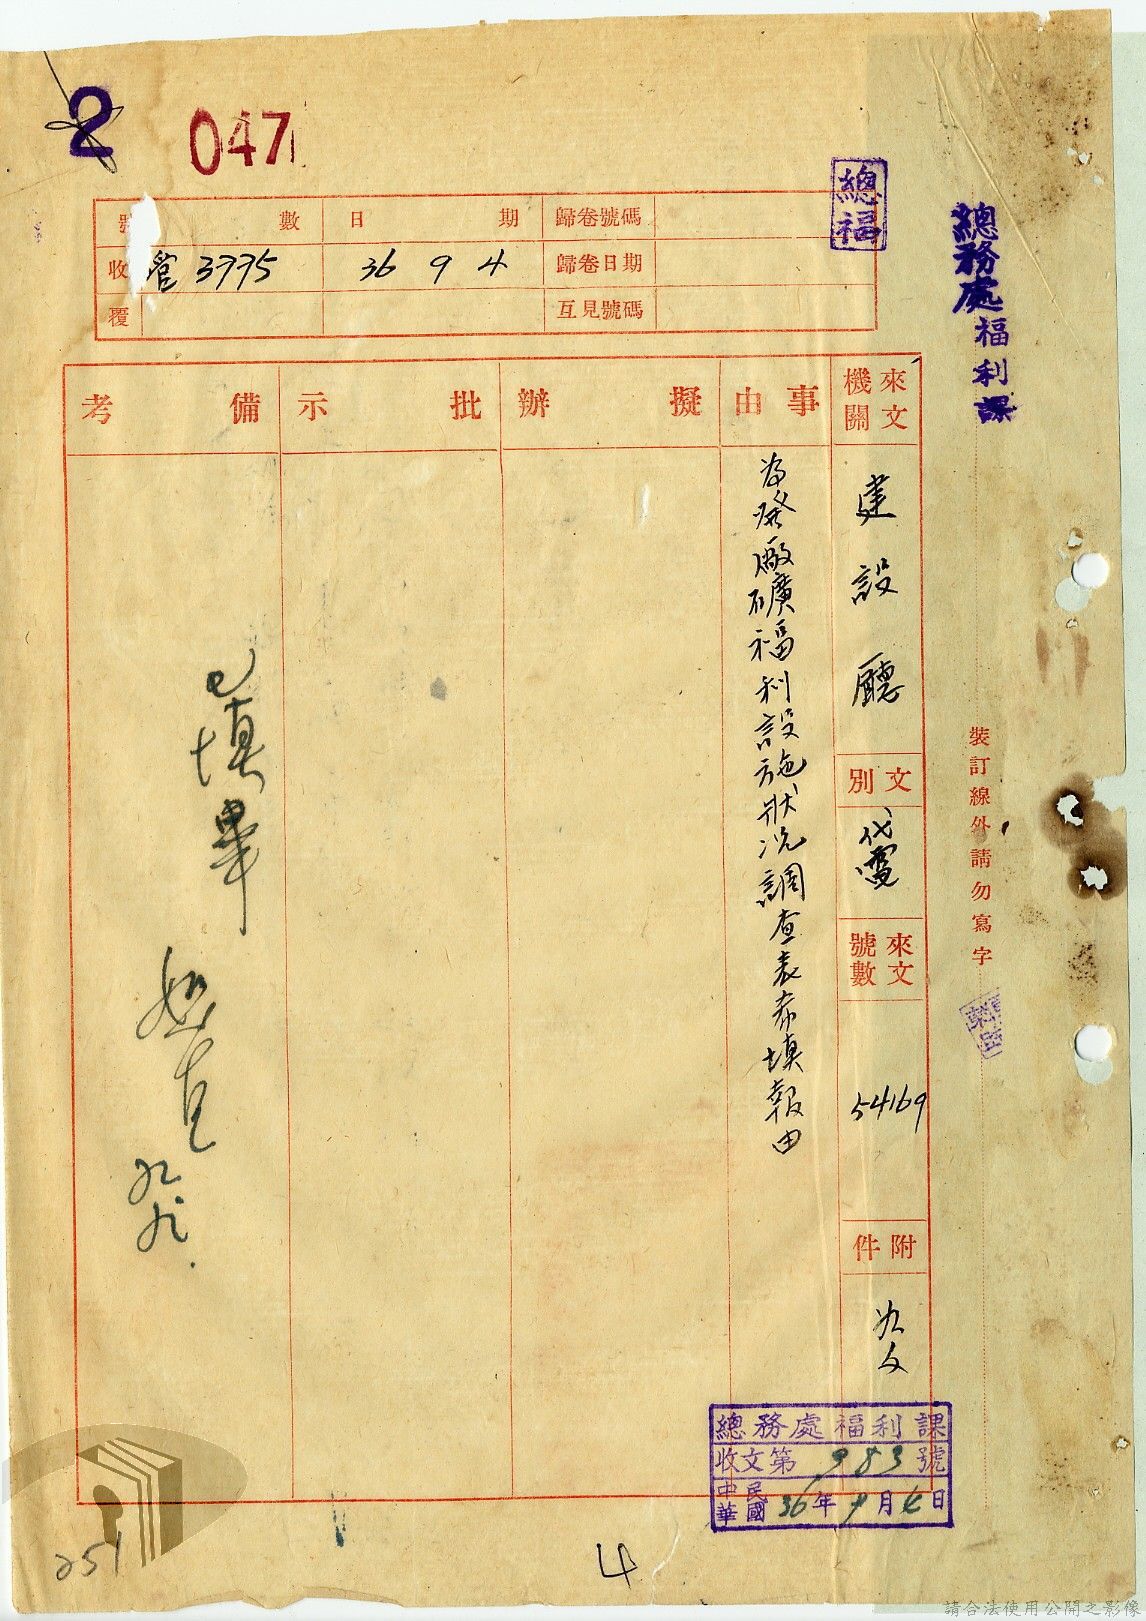 2
047
總福
總務處福利課
號數 日期 歸卷號碼
收 營 3775 36 9 4 歸卷日期
覆 互見號碼
來文機關
建設廳
文別
代電
來文號數
54169
附件
如文
事由
為發廠礦福利設施狀況調查表希填報由
擬辦
批示
備考
已填畢
九九.
裝訂線外請勿寫字
總務處福利課
收文第983號
中華民國36年9月 日
251
4
請合法使用公開之影像